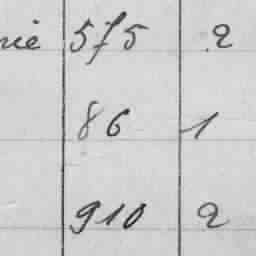 nie 575 2
86 1
910 2